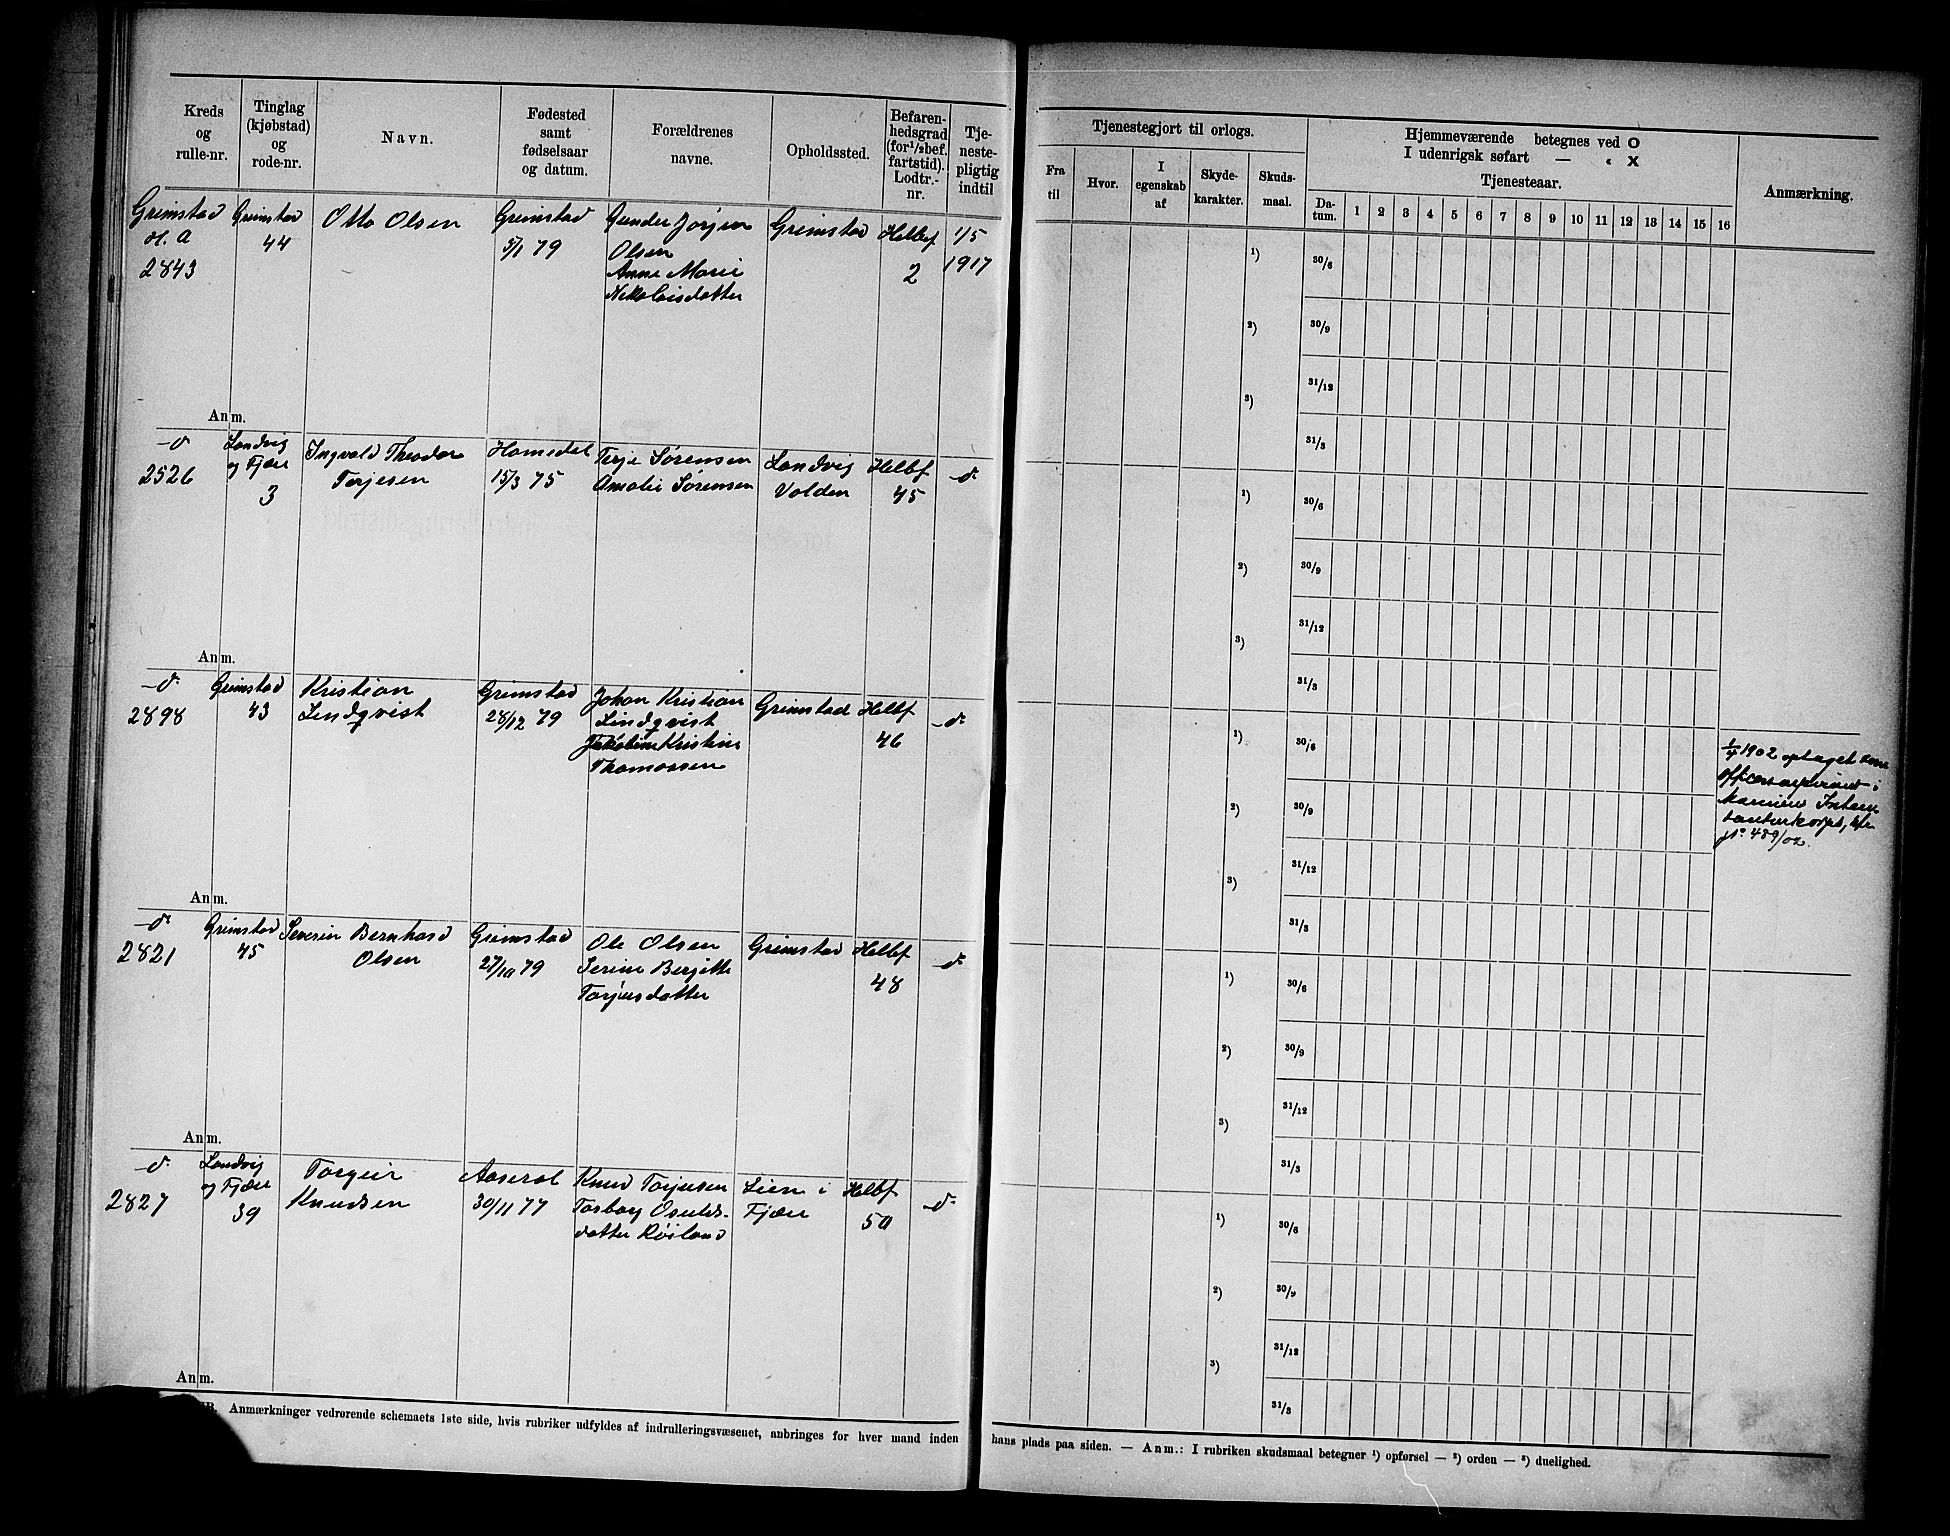 Kreds
og
rulle-nr.
Tinglag
(kjøbstad)
og
rode-nr.
Navn.
Fødested
samt
fødselsaar
og datum.
Forældrenes
navne.
Opholdssted.
Befaren-
hedsgrad
(for ½ bef.
fartstid).
Lodtr.-
nr.
Tje-
neste-
pligtig
indtil
Tjenestegjort til orlogs.
Fra
til
Hvor.
I
egenskab
af
Skyde-
karakter.
Skuds-
maal.
Hjemmeværende betegnes ved O
I udenrigsk søfart — « X
Tjenesteaar.
Da-
tum.
1 2 3 4 5 6 7 8 9 10 11 12 13 14 15 16
Anmærkning.
Grimstad
2843
Grimstad
44
Otto Olsen
Grimstad
5/1 79
Gunder Jorjen
Olsen
Anne Marie
Nikolaisdatter
Grimstad
Helbef
2
1/5
1917
1) 30/6
2) 30/9
31/12
3)
31/3
Anm.
-d-
2526
Landvig
og Fjære
3
Ingvald Theodor
Terjesen
Homedal
15/3 75
Terje Sørensen
Amalie Sørensen
Landvig
Volden
Helbf
45
-d-
1) 30/6
2) 30/9
31/12
3)
31/3
Anm.
-d-
2898
Grimstad
43
Kristian
Lindqvist
Grimstad
28/12 79
Johan Kristian
Lindqvist
Jakobine Kristine
Thomassen
Grimstad
Helbf
46
-d-
1) 30/6
2) 30/9
31/12
3)
31/3
1/4 1902 optaget som
officersaspirant i
Marinens Inten-
danturkorps,
No 489/02.
Anm.
-d-
2821
Grimstad
45
Severin Bernhard
Olsen
Grimstad
27/10 79
Ole Olsen
Serine Berjitte
Torjusdatter
Grimstad
Helbf
48
-d-
1) 30/6
2) 30/9
31/12
3)
31/3
Anm.
-d-
2827
Landvig
og Fjære
39
Torgeir
Knudsen
Aaseral
30/11 77
Knud Torjusen
Torborg Osulds-
datter Røiland
Lien i
Fjære
Helbf
50
-d-
1) 30/6
2) 30/9
31/12
3)
31/3
Anm.
Anmærkninger vedrørende schemaets 1ste side, hvis rubriker udfyldes af indrulleringsvæsenet, anbringes for hver mand inden
hans plads paa siden. — Anm.: I rubriken skudsmaal betegner 1) opførsel — 2) orden — 3) duelighed.